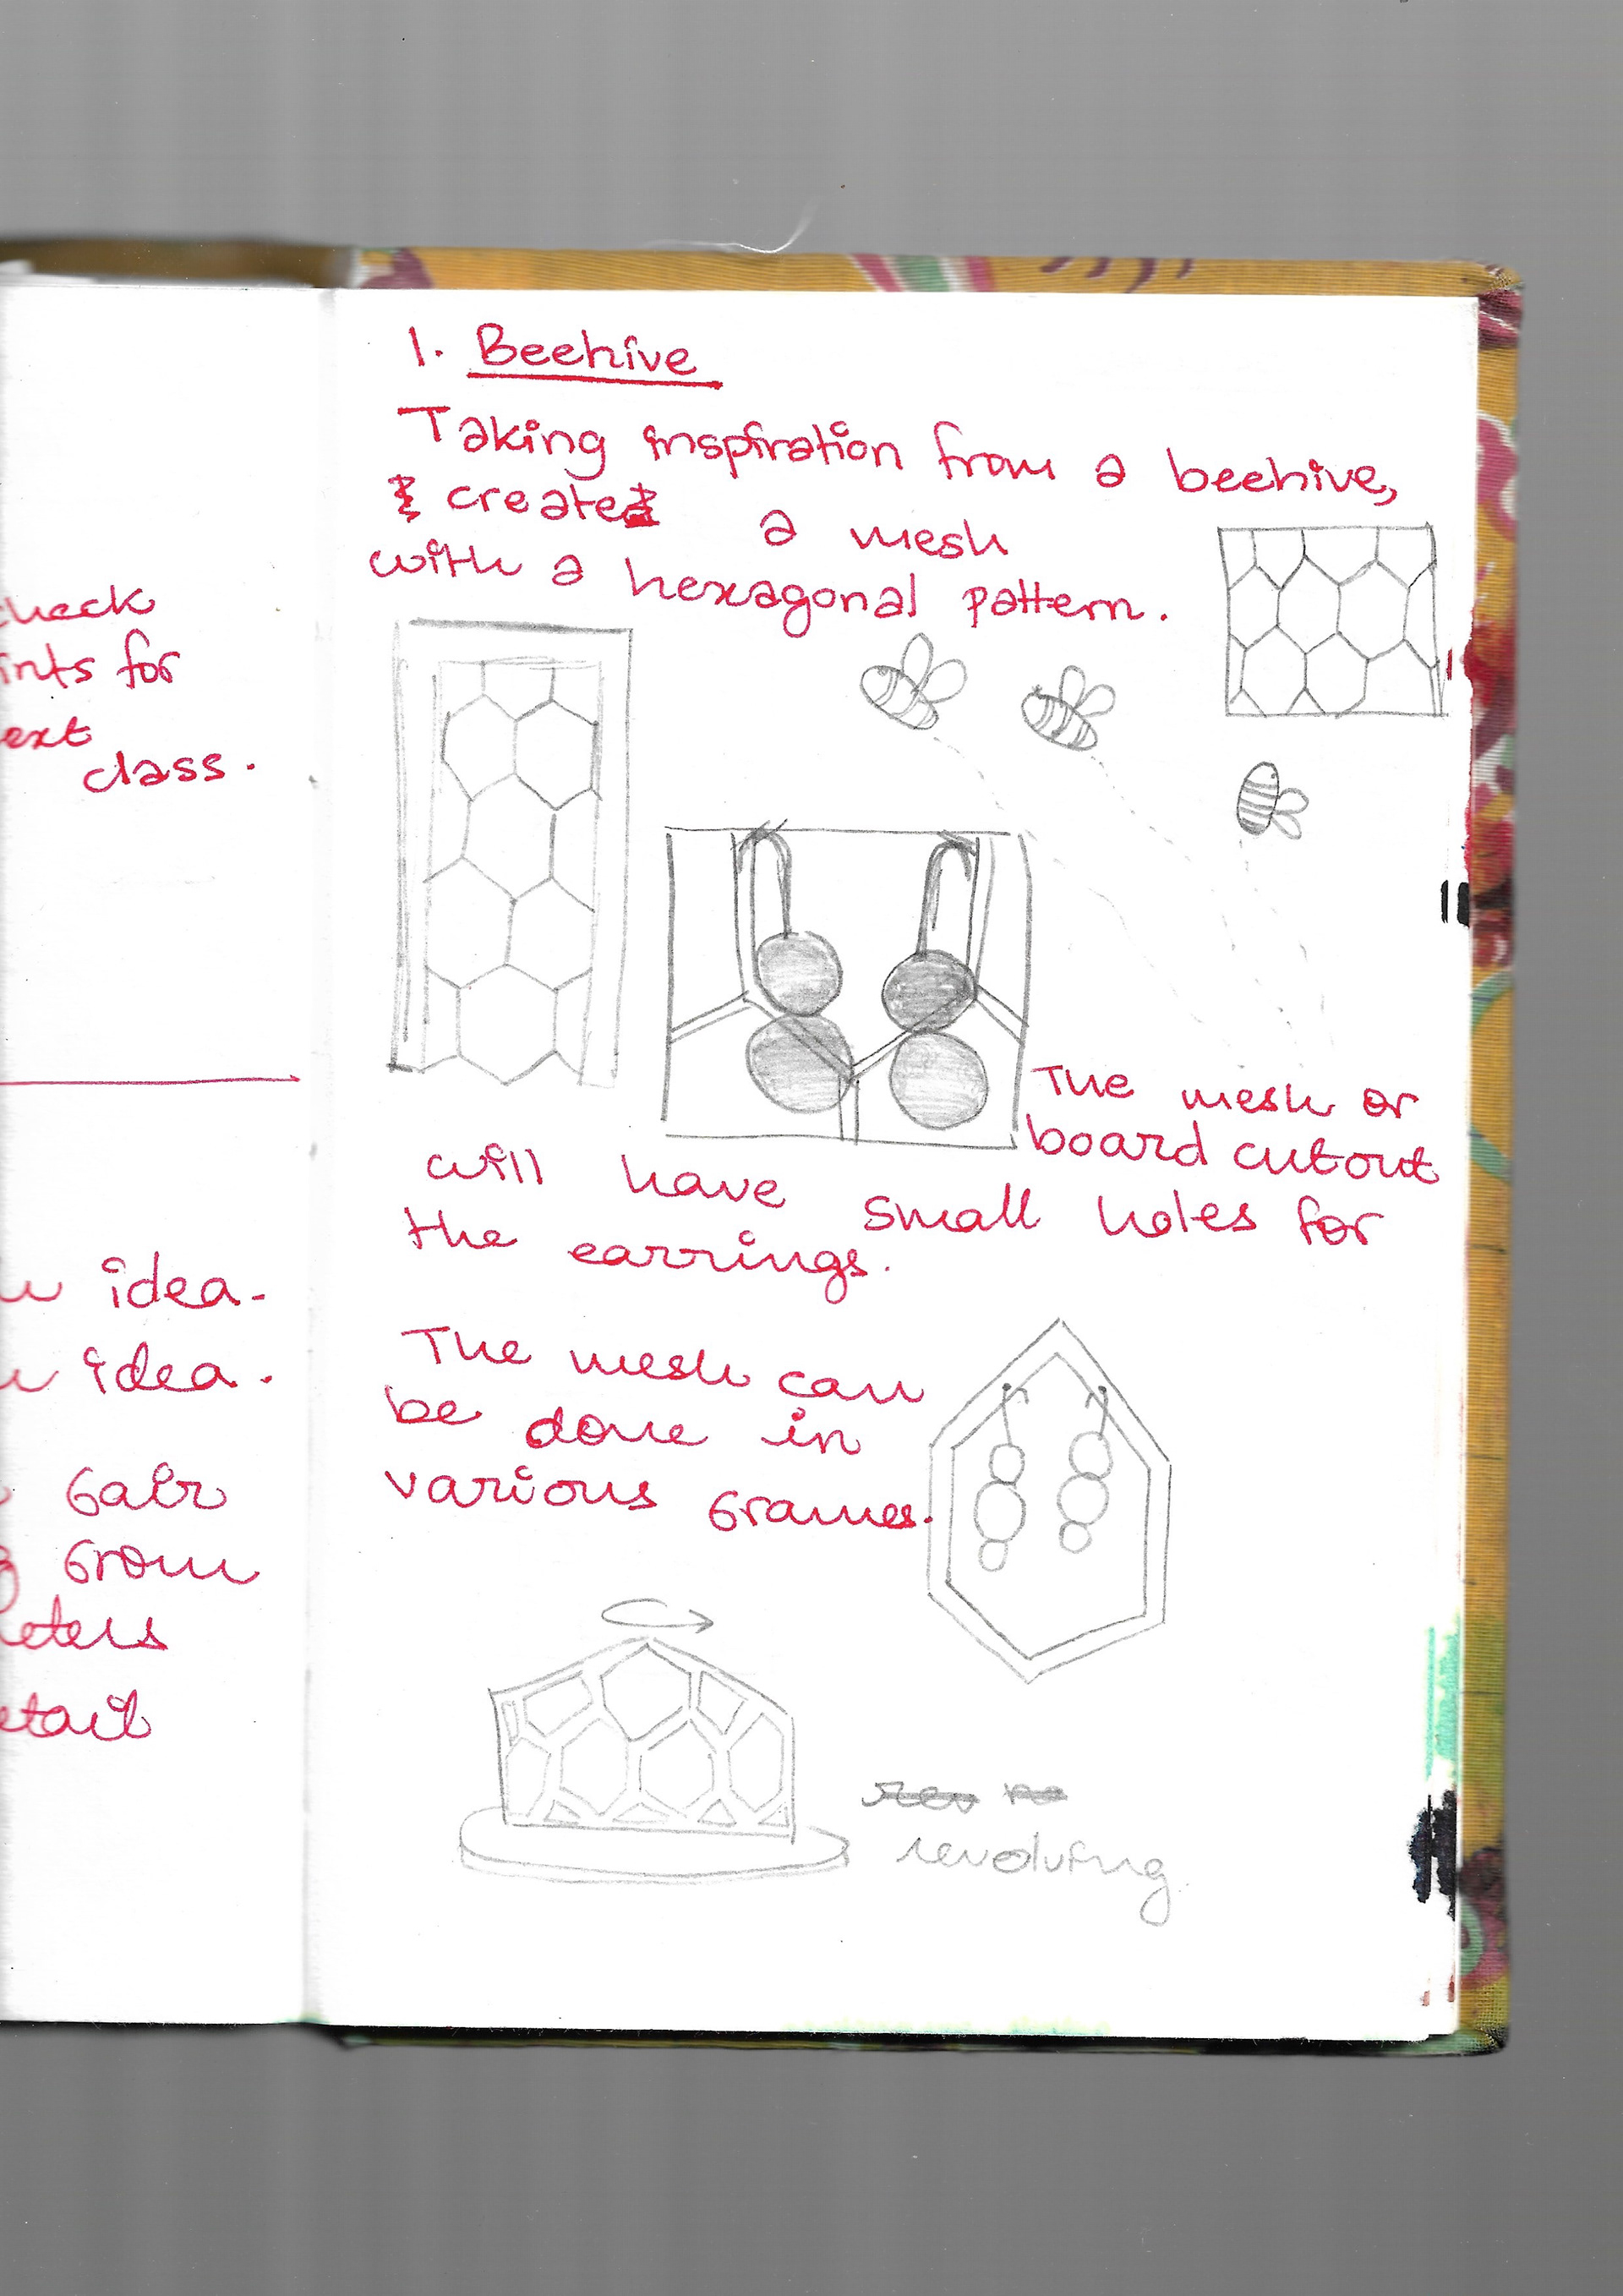 check
ints for
ext
class.
idea.
idea.
fair
from
eters
etail
1. Beehive
Taking inspiration from a beehive,
create a mesh
with a hexagonal pattern.
The mesh or
board cutout
will have small holes for
the earrings.
The mesh can
be done in
various frames.
revolving